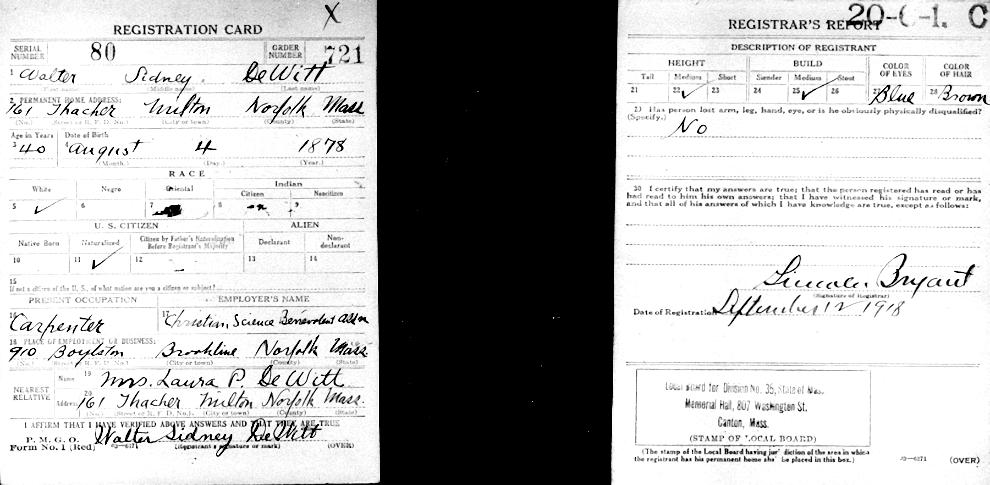 X
REGISTRATION CARD
SERIAL NUMBER 80 ORDER NUMBER 721
1 Walter Sidney DeWitt
(First name) (Middle name) (Last name)
2 PERMANENT HOME ADDRESS:
161 Thacher Milton Norfolk Mass
(No.) (Street or R. F. D. No.) (City or town) (County) (State)
Age in Years Date of Birth
3 40 4 August 4 1878
(Month.) (Day.) (Year.)
RACE
White Negro Oriental Indian
Citizen Noncitizen
5 ✓ 6 7 8 9
U. S. CITIZEN ALIEN
Native Born Naturalized Citizen by Father's Naturalization Before Registrant's Majority Declarant Non-declarant
10 11 ✓ 12 13 14
15
If not a citizen of the U. S., of what nation are you a citizen or subject?
PRESENT OCCUPATION EMPLOYER'S NAME
16 Carpenter 17 Christian Science Benevolent Assn
18 PLACE OF EMPLOYMENT OR BUSINESS:
910 Boylston Brookline Norfolk Mass
(No.) (Street or R. F. D. No.) (City or town) (County) (State)
NEAREST RELATIVE
Name 19 Mrs. Laura P. DeWitt
Address 20 161 Thacher Milton Norfolk Mass.
(No.) (Street or R. F. D. No.) (City or town) (County) (State)
I AFFIRM THAT I HAVE VERIFIED ABOVE ANSWERS AND THAT THEY ARE TRUE
P. M. G. O.
Form No. 1 (Red) Walter Sidney DeWitt
(Registrant's signature or mark) (OVER)
20-6-1. C
REGISTRAR'S REPORT
DESCRIPTION OF REGISTRANT
HEIGHT BUILD COLOR OF EYES COLOR OF HAIR
Tall Medium Short Slender Medium Stout
21 22 ✓ 23 24 25 ✓ 26 27 Blue 28 Brown
29 Has person lost arm, leg, hand, eye, or is he obviously physically disqualified?
(Specify.) No
30 I certify that my answers are true; that the person registered has read or has
had read to him his own answers; that I have witnessed his signature or mark,
and that all of his answers of which I have knowledge are true, except as follows:
Lincoln Bryant
(Signature of Registrar)
Date of Registration September 12 1918
Local Board for Division No. 35, State of Mass.
Memorial Hall, 807 Washington St.
Canton, Mass.
(STAMP OF LOCAL BOARD)
(The stamp of the Local Board having jurisdiction of the area in which
the registrant has his permanent home shall be placed in this box.)
(OVER)